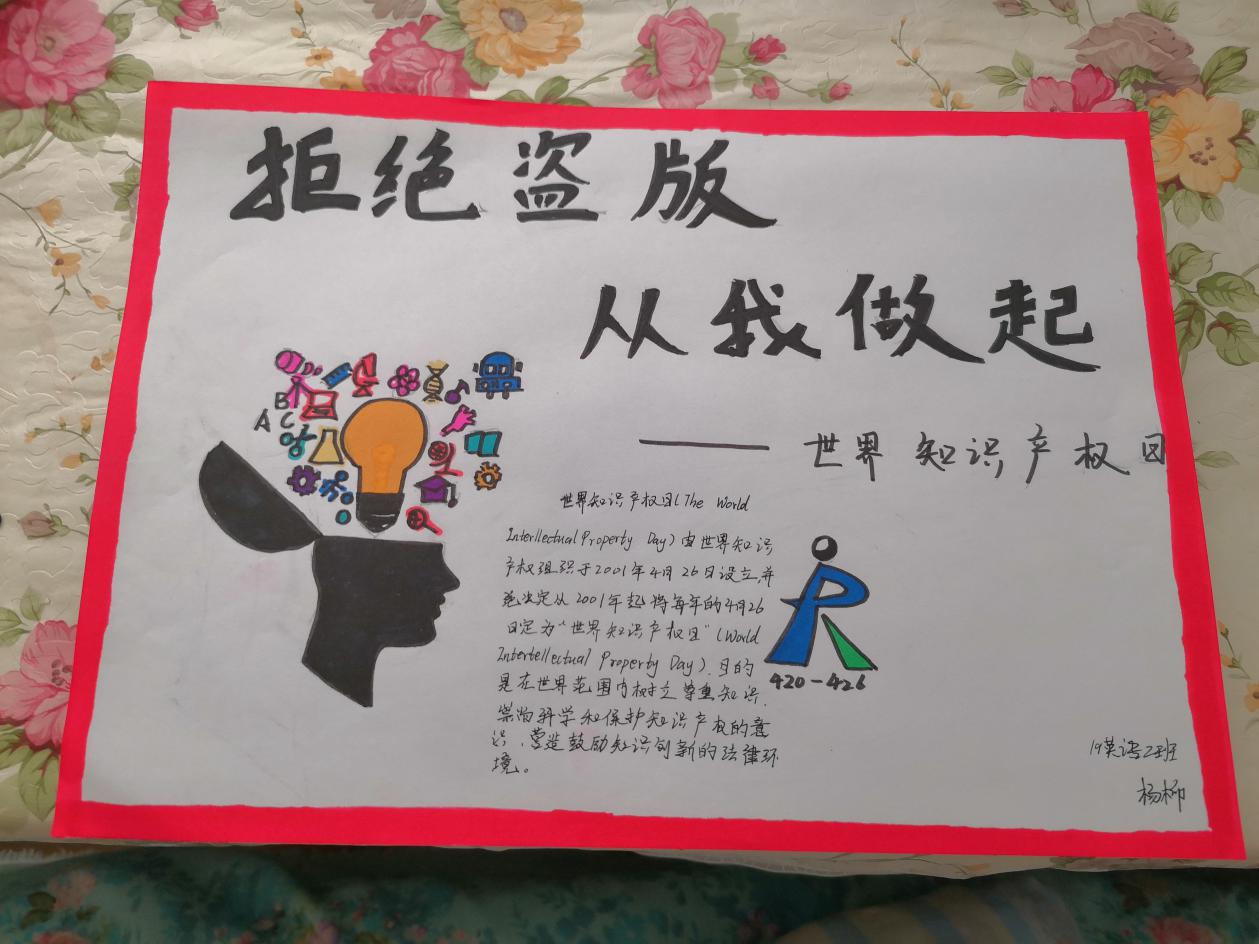 拒绝盗版
从我做起
——世界知识产权日
B
A C
世界知识产权日(The World
Interllectual Property Day)由世界知识
产权组织于2001年4月26日设立,并
决定从2001年起将每年的4月26
日定为"世界知识产权日"(World
Intertellectual Property Day).目的
是在世界范围内树立尊重知识.
崇尚科学和保护知识产权的意
识.营造鼓励知识创新的法律环
境。
420-426
19英语2班
杨柳